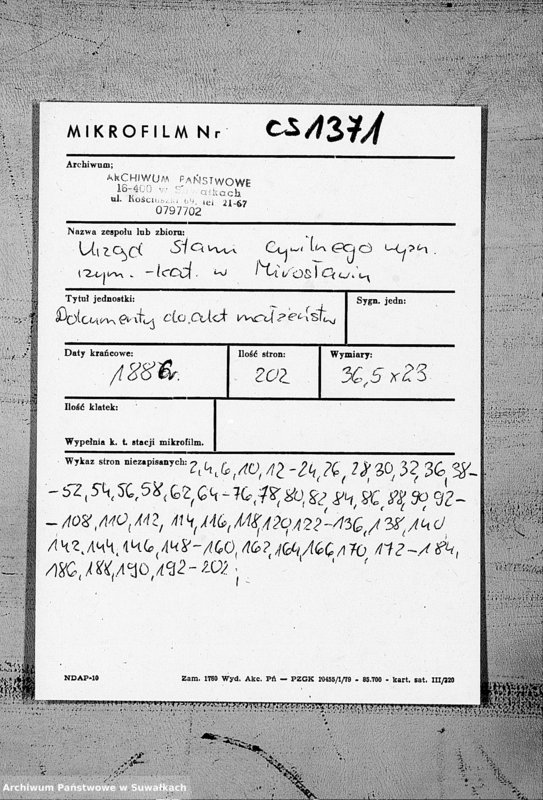 MIKROFILM Nr CS1371
Archiwum:
ARCHIWUM PAŃSTWOWE
16-400 w Suwałkach
ul. Kościuszki 69, tel 21-67
0797702
Nazwa zespołu lub zbioru:
Urząd Stanu Cywilnego wyzn.
rzym.-kat. w Mirosławiu
Tytuł jednostki:
Sygn. jedn:
Dokumenty do akt małżeństw
Daty krańcowe:
Ilość stron:
Wymiary:
1886r.
202
36,5 x 23
Ilość klatek:
Wypełnia k. t. stacji mikrofilm.
Wykaz stron niezapisanych: 2,4,6,10,12-24,26,28,30,32,36,38-
-52,54,56,58,62,64-76,78,80,82,84,86,88,90,92-
-108,110,112,114,116,118,120,122-136,138,140
142,144,146,148-160,162,164,166,170,172-184,
186,188,190,192-202;
NDAP-10
Zam. 1760 Wyd. Akc. Pń — PZGK 20455/1/79 - 85.700 - kart. sat. III/220
Archiwum Państwowe w Suwałkach